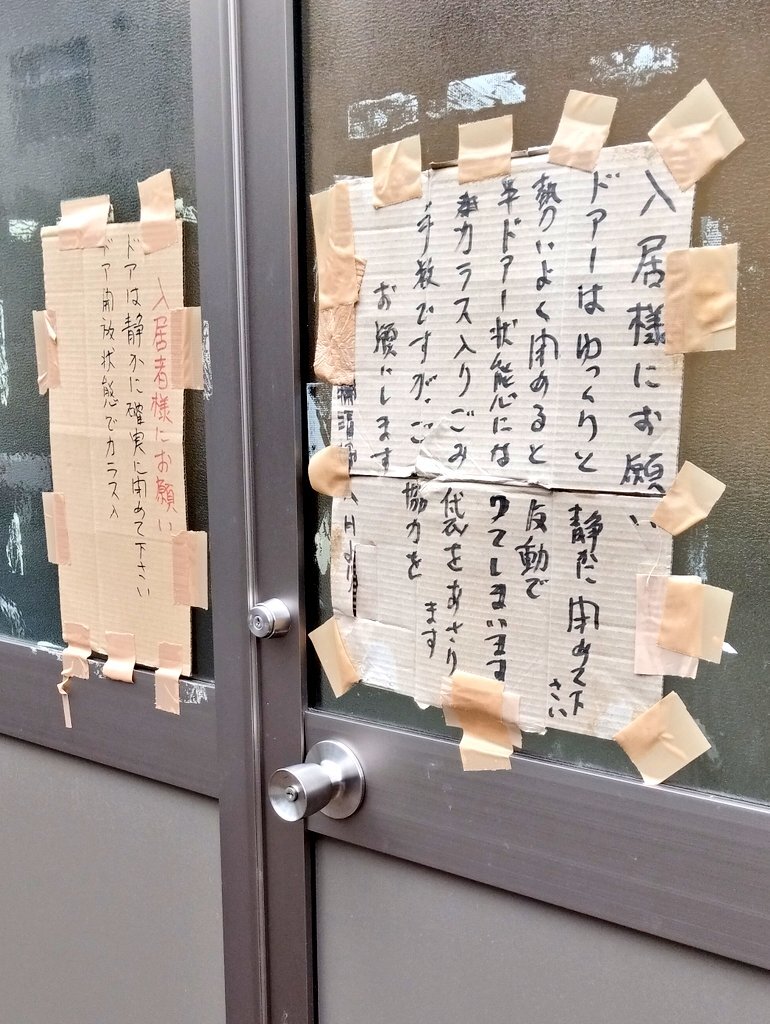 入居様にお願い
ドアーはゆっくりと静かに閉めて下さい
勢いよく閉めると反動で
半ドアー状態になってしまいます
カラス入りごみ袋をあさります
手数ですが、ご協力を
お願いします
入居者様にお願い
ドアは静かに確実に閉めて下さい
ドア開放状態でカラス入